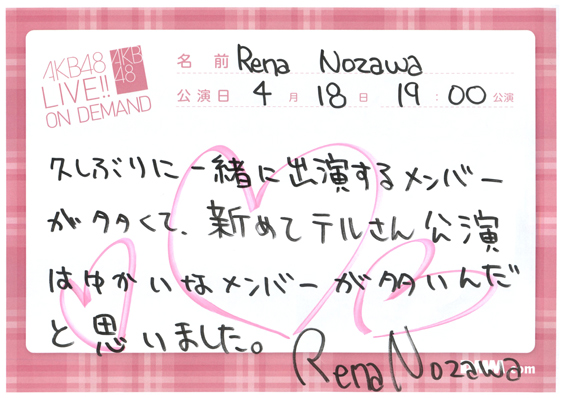 AKB48
LIVE!!
ON DEMAND
AKB
48
名前 Rena Nozawa
公演日 4月18日 19:00公演
久しぶりに一緒に出演するメンバー
が多くて、新めてテルさん公演
はゆかいなメンバーが多いんだ
と思いました。
Rena Nozawa
.com